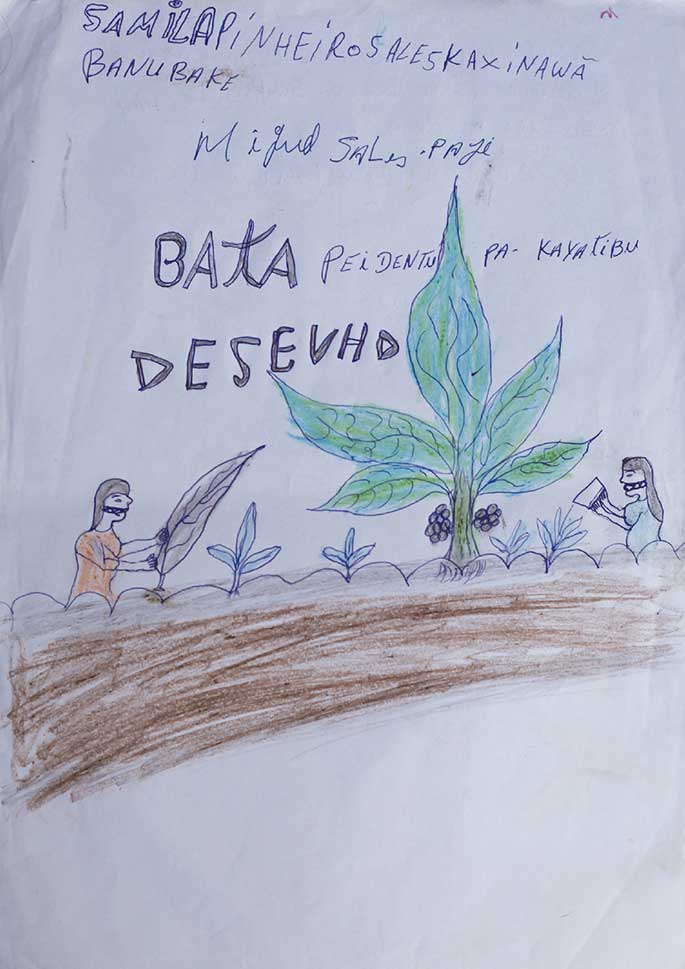 SAMILAPiNHEiROSALESKAXiNAWÃ
BANUBAKE
Miguel SALes.PAJé
BATA PEi DENTU PA- KAYATiBU
DESEVHO